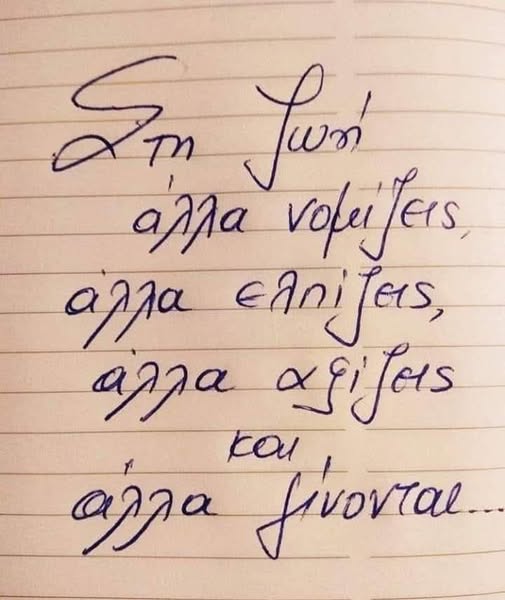 Στη ζωή
άλλα νομίζεις,
άλλα ελπίζεις,
άλλα αξίζεις
και
άλλα γίνονται...